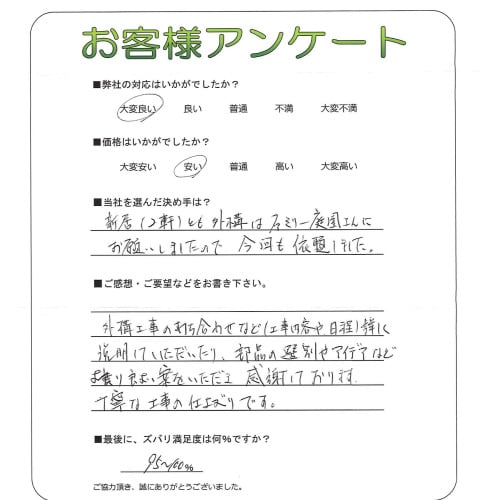 お客様アンケート
■弊社の対応はいかがでしたか?
大変良い 良い 普通 不満 大変不満
■価格はいかがでしたか?
大変安い 安い 普通 高い 大変高い
■当社を選んだ決め手は?
新居(2軒)とも外構はファミリー庭園さんに
お願いしましたので 今回も依頼しました。
■ご感想・ご要望などをお書き下さい。
外構工事の打ち合わせなど(工事内容や日程)詳に
説明していただいたり、部品の選別やアイデアなど
より良い案をいただき 感謝しております。
丁寧な工事の仕上がりです。
■最後に、ズバリ満足度は何%ですか?
95~100%
ご協力頂き、誠にありがとうございました。